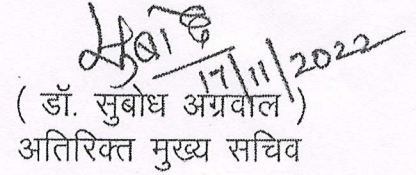 सुबोध
17/11/2022
( डॉ. सुबोध अग्रवाल )
अतिरिक्त मुख्य सचिव